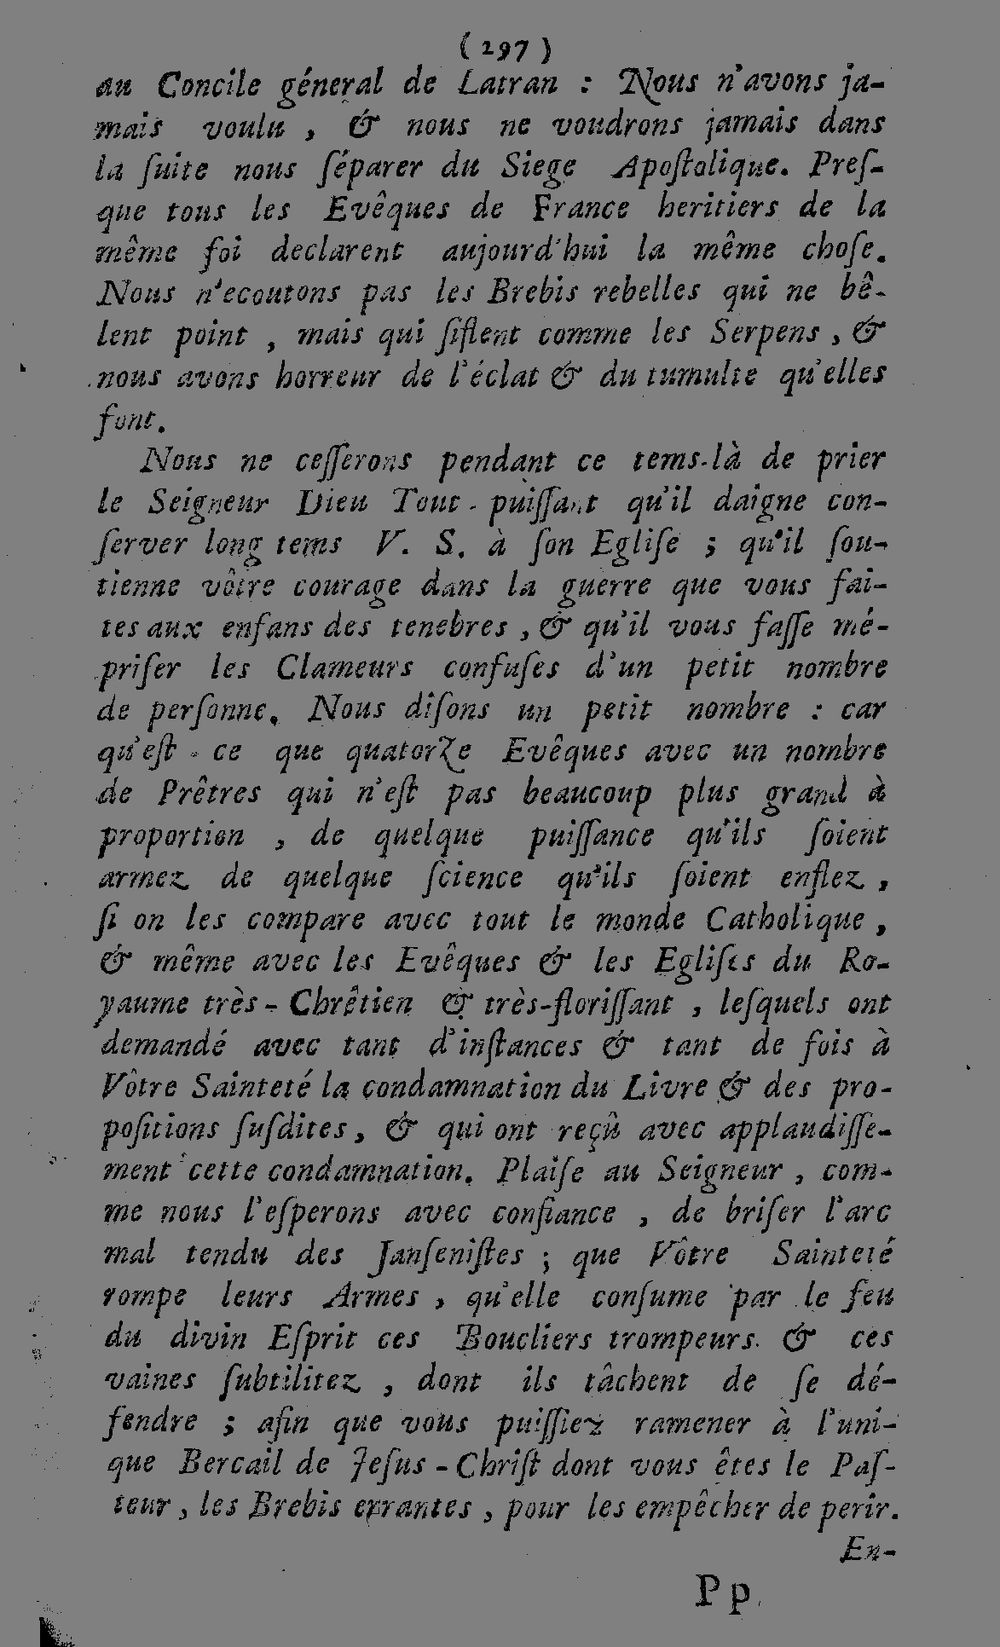 ( 297 )
au Concile géneral de Latran : Nous n'avons ja-
mais voulu , & nous ne voudrons jamais dans
la ſuite nous ſéparer du Siege Apoſtolique. Preſ-
que tous les Evêques de France heritiers de la
même foi declarent aujourd'hui la même choſe.
Nous n'ecoutons pas les Brebis rebelles qui ne bê-
lent point , mais qui ſiflent comme les Serpens , &
nous avons horreur de l'éclat & du tumulte qu'elles
font.
Nous ne ceſſerons pendant ce tems-là de prier
le Seigneur Dieu Tout - puiſſant qu'il daigne con-
ſerver long tems V. S. à ſon Egliſe ; qu'il ſou-
tienne vôtre courage dans la guerre que vous fai-
tes aux enfans des tenebres , & qu'il vous faſſe mé-
priſer les Clameurs confuſes d'un petit nombre
de perſonne. Nous diſons un petit nombre : car
qu'eſt - ce que quatorze Evêques avec un nombre
de Prêtres qui n'eſt pas beaucoup plus grand à
proportion , de quelque puiſſance qu'ils ſoient
armez de quelque ſcience qu'ils ſoient enflez ,
ſi on les compare avec tout le monde Catholique ,
& même avec les Evêques & les Egliſes du Ro-
yaume très - Chrêtien & très-floriſſant , leſquels ont
demandé avec tant d'inſtances & tant de fois à
Vôtre Sainteté la condamnation du Livre & des pro-
poſitions ſuſdites , & qui ont reçû avec applaudiſſe-
ment cette condamnation. Plaiſe au Seigneur , com-
me nous l'eſperons avec confiance , de briſer l'arc
mal tendu des Janſeniſtes ; que Vôtre Sainteté
rompe leurs Armes , qu'elle conſume par le feu
du divin Eſprit ces Boucliers trompeurs. & ces
vaines ſubtilitez , dont ils tâchent de ſe dé-
fendre ; afin que vous puiſſiez ramener à l'uni-
que Bercail de Jeſus - Chriſt dont vous êtes le Paſ-
teur , les Brebis errantes , pour les empêcher de perir.
En-
Pp